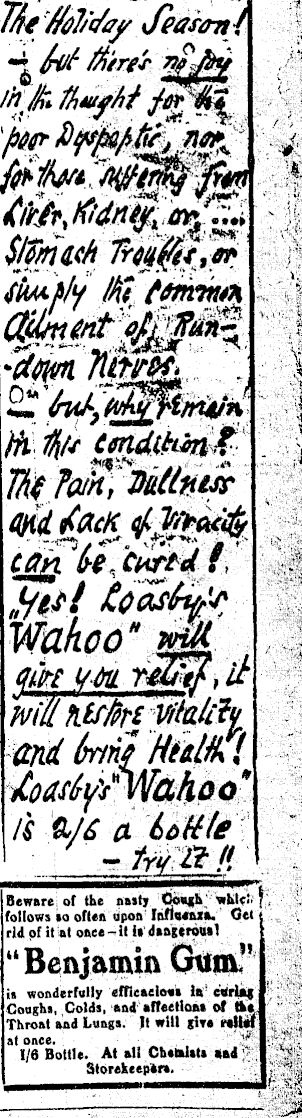 The Holiday Season!
— but there's no joy
in the thought for the
poor Dyspeptic, nor
for those suffering from
Liver, Kidney, or, ....
Stomach Troubles, or
simply the common
Ailment of, Run-
-down Nerves.
— but, why remain
in this condition?
The Pain, Dullness
and Lack of Vivacity
can be cured!
„Yes! Loasby's
Wahoo" will
give you relief, it
will restore vitality
and bring Health!
Loasby's "Wahoo"
is 2/6 a bottle
— try it!!
Beware of the nasty Cough which
follows so often upon Influenza. Get
rid of it at once—it is dangerous!
"Benjamin Gum"
is wonderfully efficacious in curing
Coughs, Colds, and affections of the
Throat and Lungs. It will give relief
at once.
1/6 Bottle. At all Chemists and
Storekeepers.